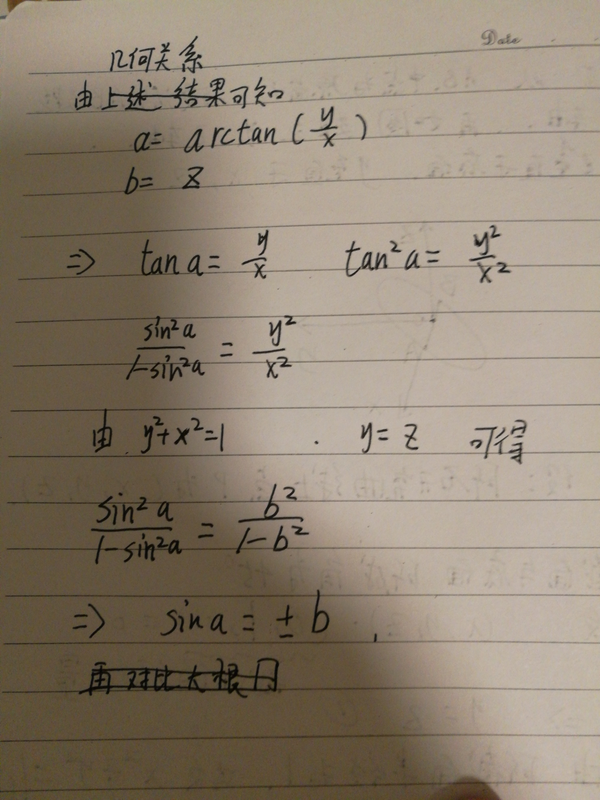 Date
几何关系
由上述结果可知
a = arctan ( y/x )
b = z
=> tan a = y/x tan²a = y²/x²
sin²a/1-sin²a = y²/x²
由 y²+x²=1 . y = z 可得
sin²a/1-sin²a = b²/1-b²
=> sin a = ± b ,
再对比大根